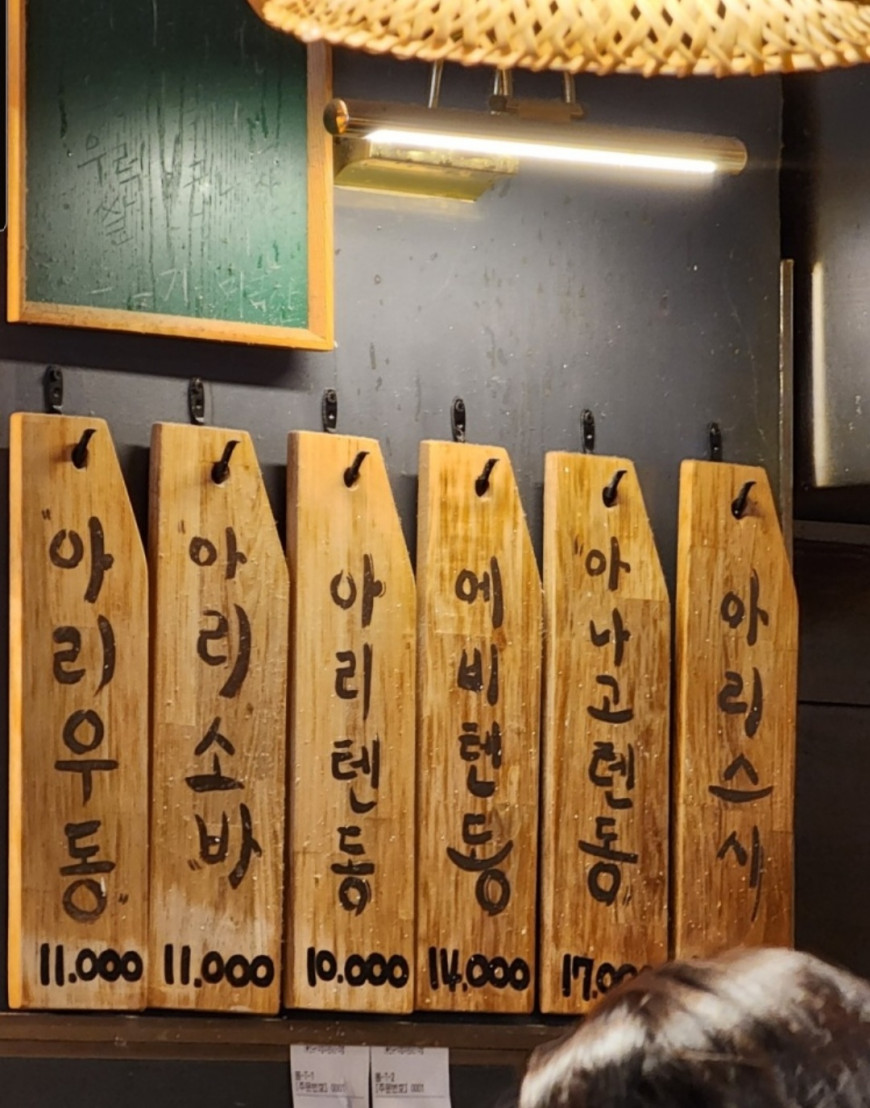 "아리우동"
11.000
"아리소바"
11.000
아리텐동
10.000
에비텐동
14.000
"아나고텐동"
아리스시